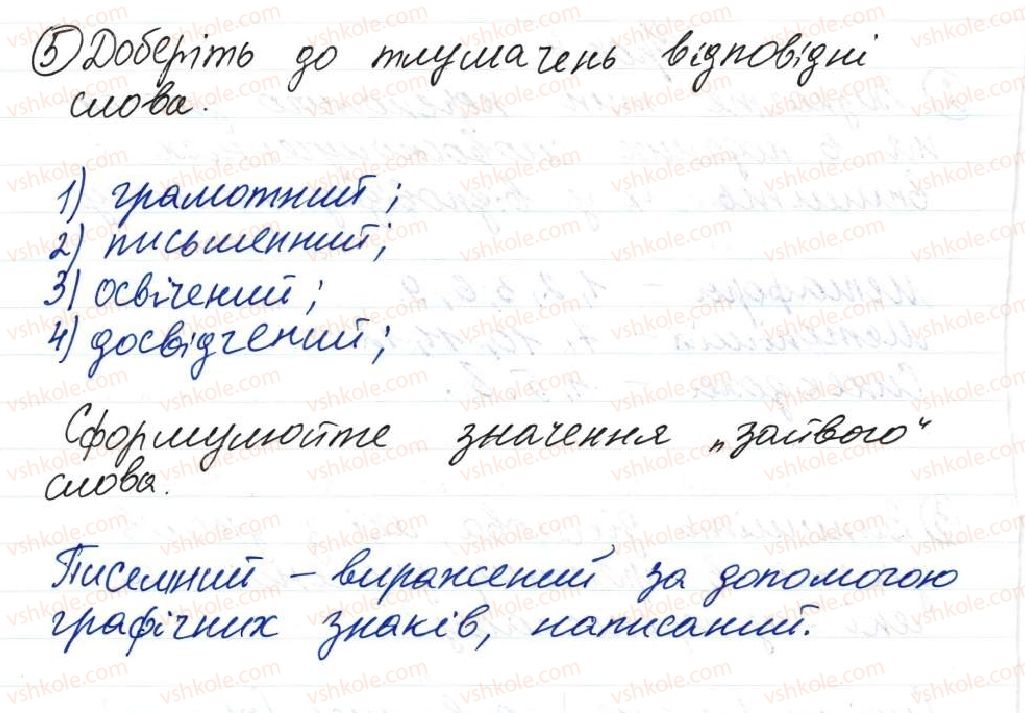 5 Доберіть до тлумачень відповідні
слова.
1) грамотний;
2) письменний;
3) освічений;
4) досвідчений;
Сформулюйте значення „зайвого"
слова.
Писемний – виражений за допомогою
графічних знаків, написаний.